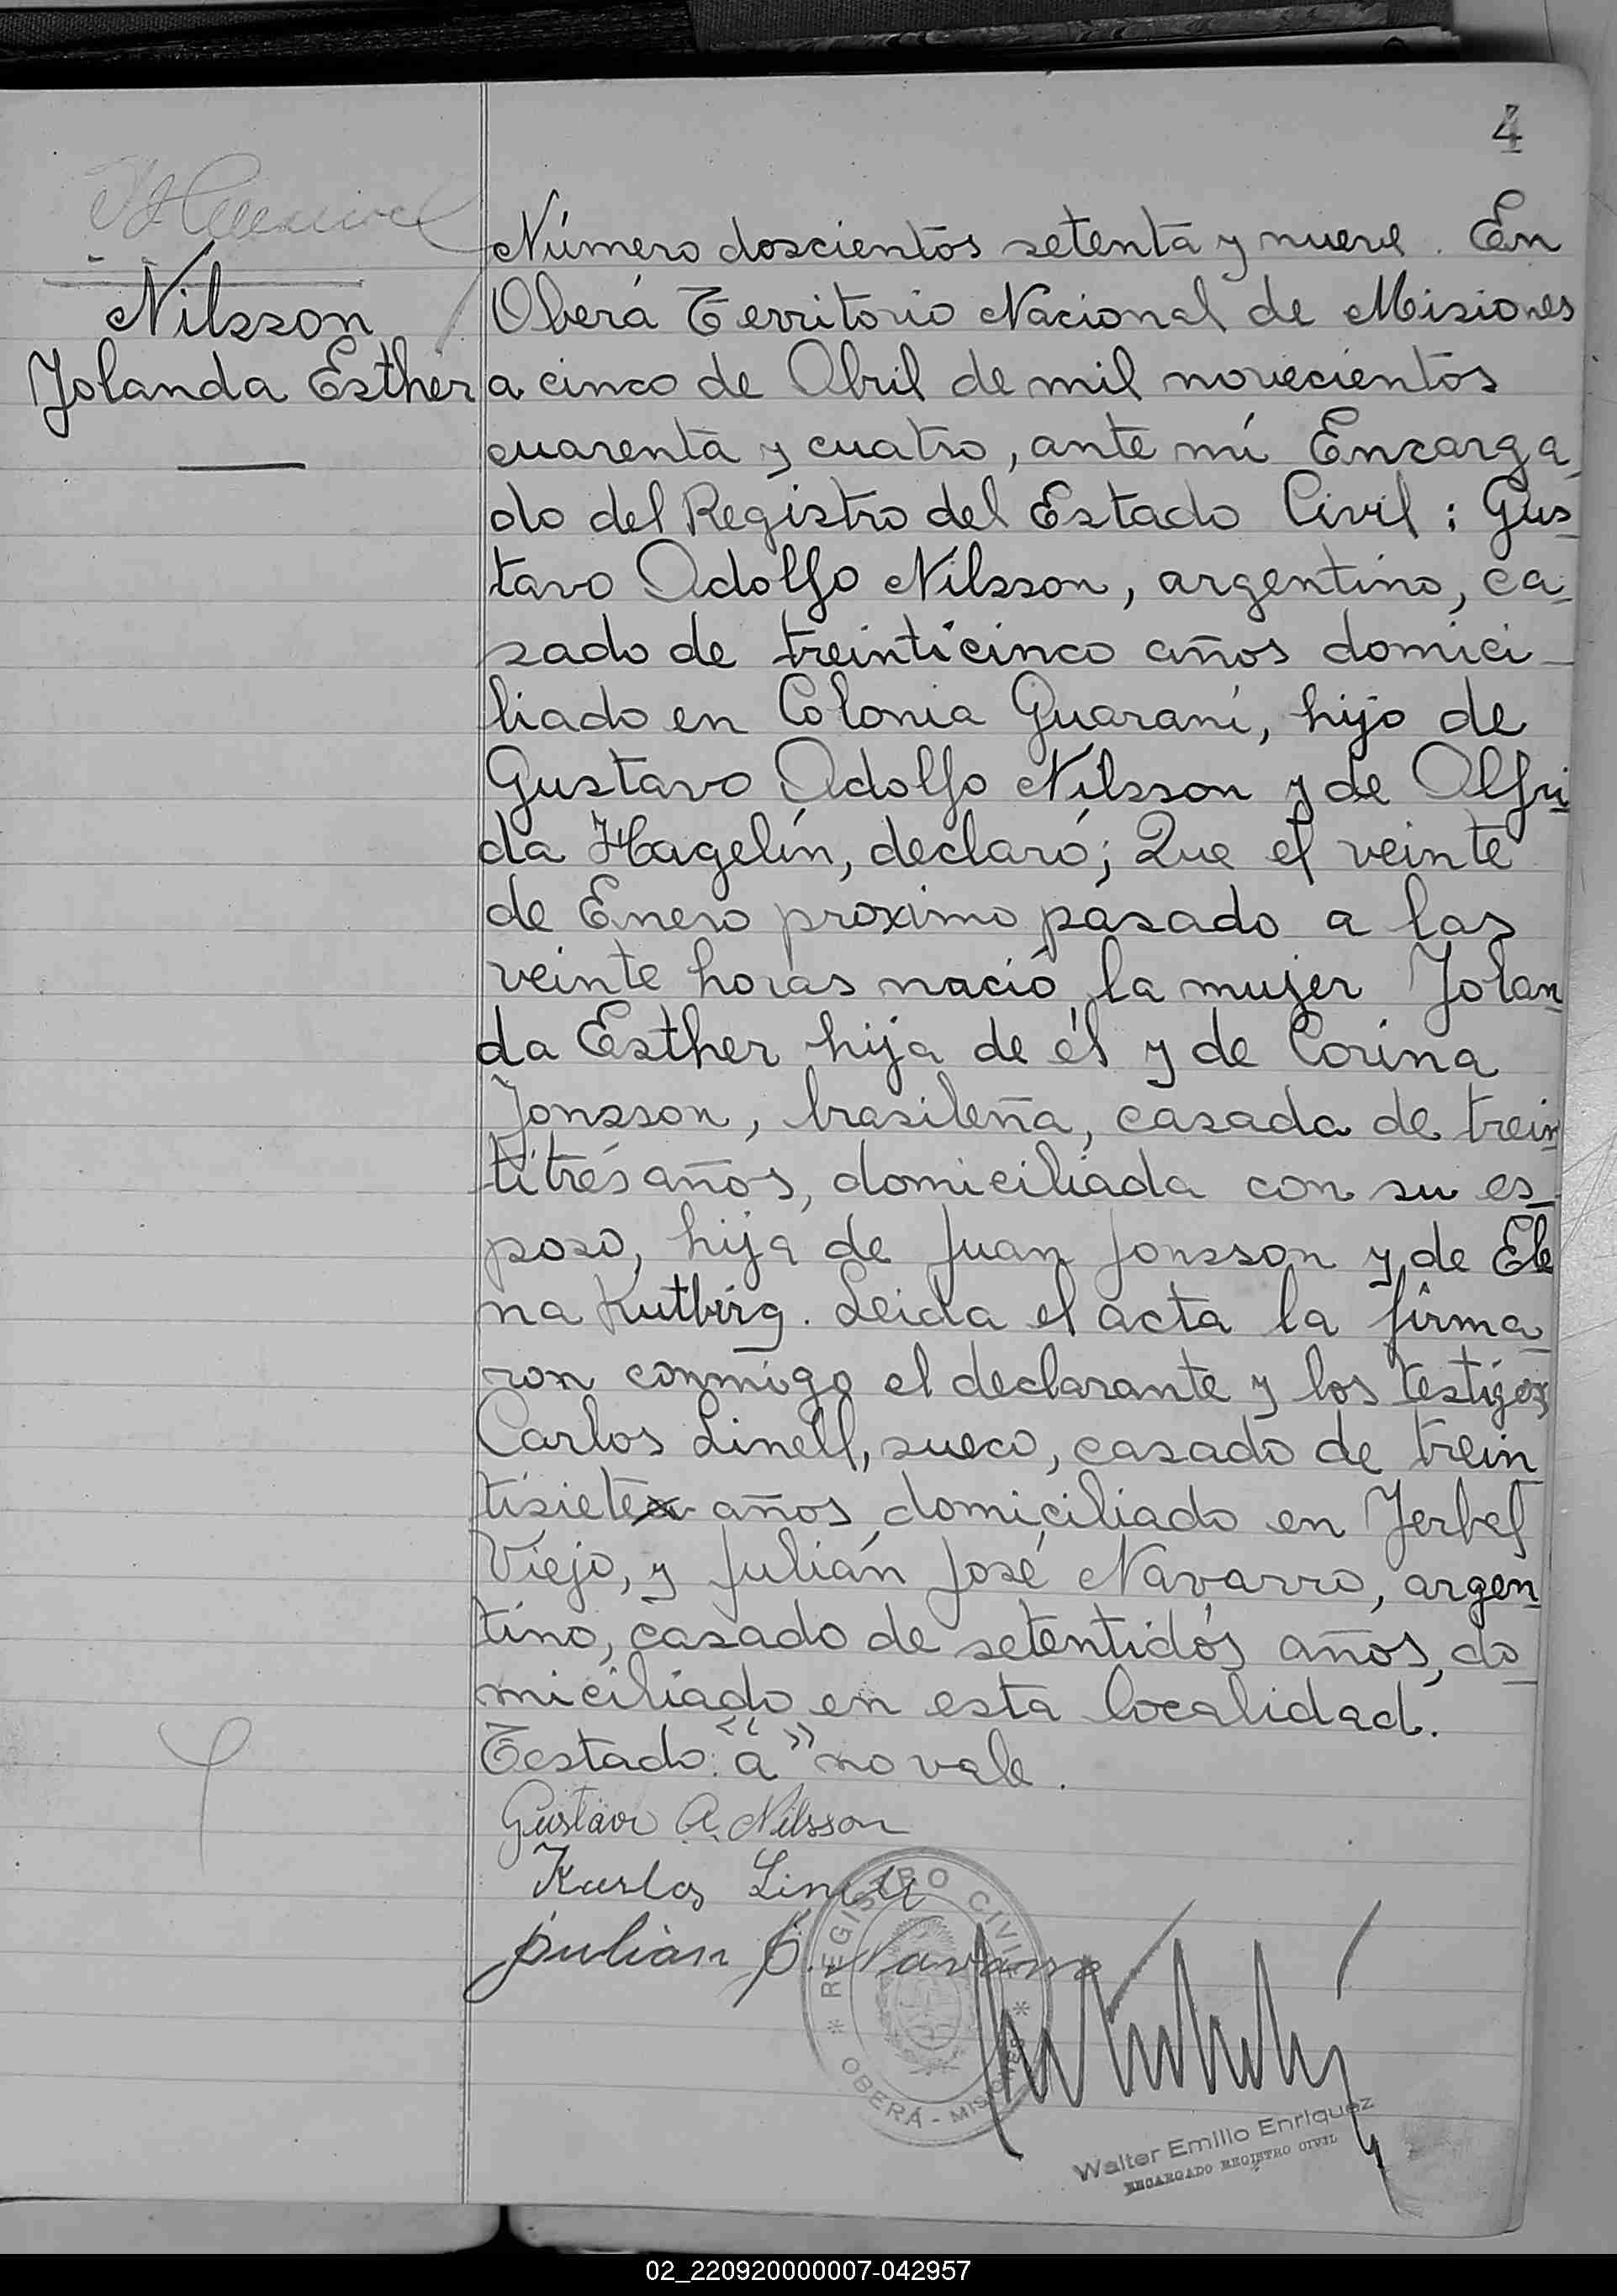 4
Nilsson
Jolanda Esther
Número doscientos setenta y nueve. En
Oberá Territorio Nacional de Misiones
a cinco de Abril de mil noviecientos
cuarenta y cuatro, ante mí Encarga
do del Registro del Estado Civil: Gus-
tavo Adolfo Nilsson, argentino, ca-
sado de treinticinco años domici-
liado en Colonia Guaraní, hijo de
Gustavo Adolfo Nilsson y de Alfri
da Hagelín, declaró; Que el veinte
de Enero proximo pasado a las
veinte horas nació la mujer Jolan
da Esther hija de él y de Corina
Jonsson, brasileña, casada de trein
titrés años, domiciliada con su es-
poso, hija de Juan Jonsson y de Ele
na Kutbirg. Leida el acta la firma
ron conmigo el declarante y los testigos
Carlos Linell, sueco, casado de trein
tisiete años domiciliado en Yerbal
Viejo, y Julián José Navarro, argen
tino, casado de setentidós años, do-
miciliado en esta localidad.
Testado: "a" no vale.
Gustavo A. Nilsson
Karlos Linell
Julian J. Navarro
REGISTRO CIVIL
* OBERÁ - MISIONES *
Walter Emilio Enriquez
ENCARGADO REGISTRO CIVIL
02_220920000007-042957